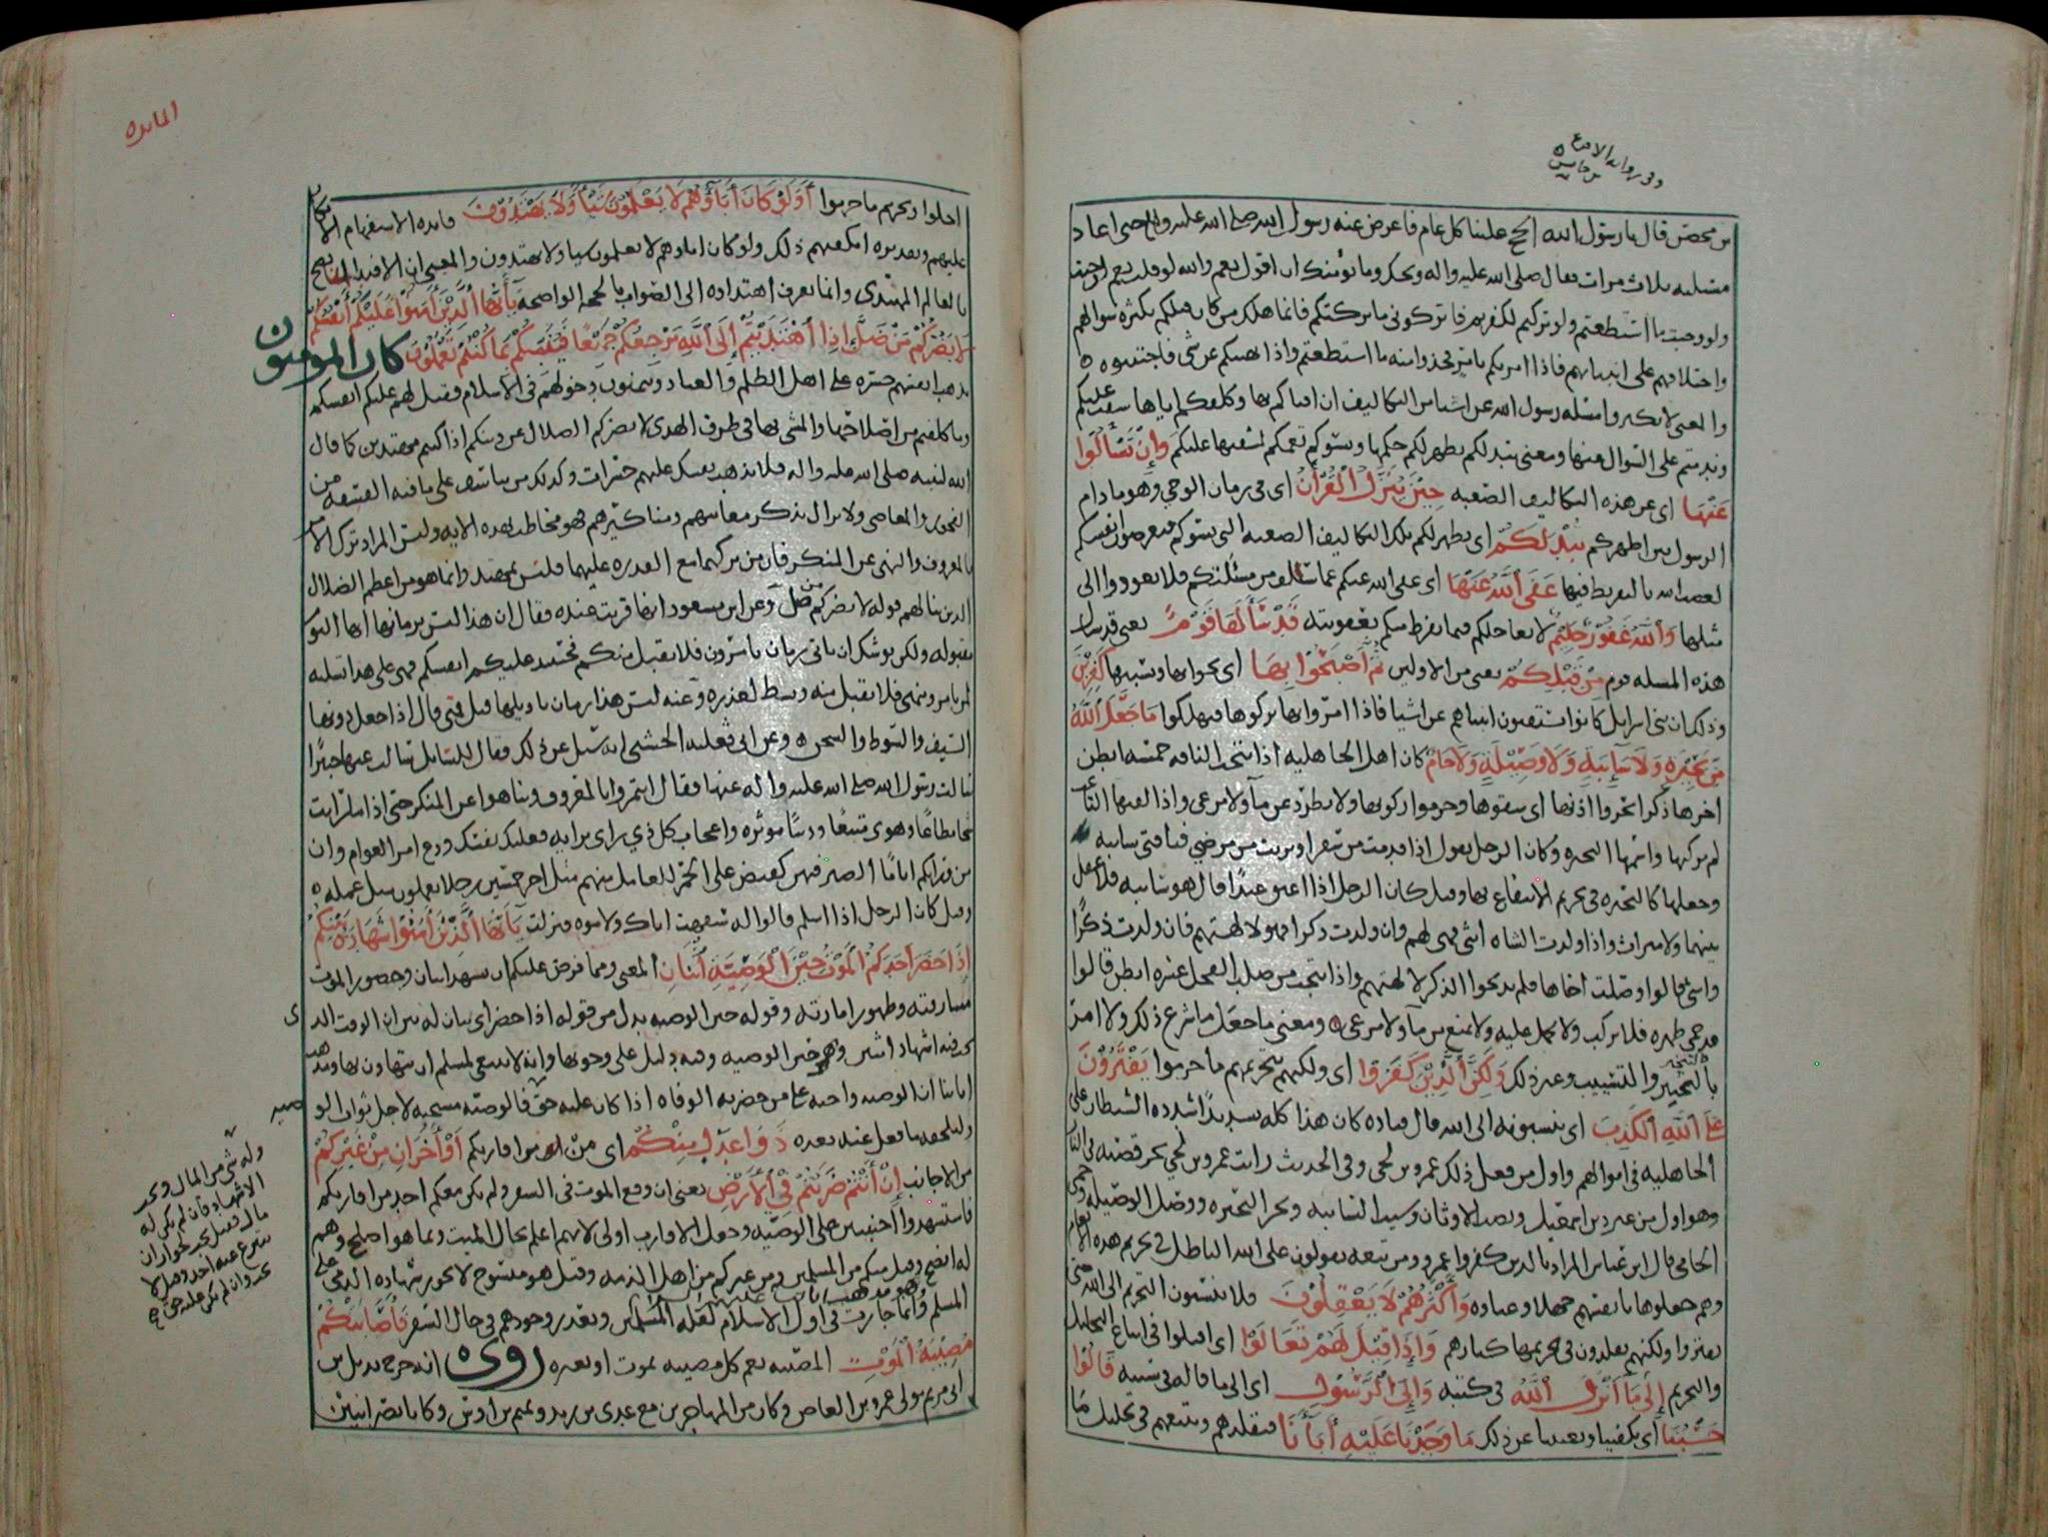 وفي رواية الاقرع
بن حابس
بن محصن قال يا رسول الله الحج علينا كل عام فاعرض عنه رسول الله صلى الله عليه وآله حتى اعاد
مسئلته ثلاث مرات فقال صلى الله عليه واله ويحك وما يؤمنك ان اقول نعم والله لو قلت نعم لوجبت
ولو وجبت ما استطعتم ولو تركتم لكفرتم فاتركوني ما تركتكم فانما هلك من كان قبلكم بكثرة سؤالهم
واختلافهم على انبيائهم فاذا امرتكم بامر فخذوا منه ما استطعتم واذا نهيتكم عن شي فاجتنبوه ه
والمعنى لا تكثروا مسئلة رسول الله عن اشيا من التكاليف ان افتاكم بها وكلفكم اياها شقت عليكم
وندمتم على السوال عنها ومعنى تبد لكم يظهر لكم حكمها وتسؤكم تغمكم لمشقتها عليكم وَإِنْ تَسْأَلُوا
عَنْهَا اي عن هذه التكاليف الصعبه حِينَ يُنَزَّلُ الْقُرْآنُ اي في زمان الوحي وهو ما دام
الرسول بين اظهركم تُبْدَ لَكُمْ اي يظهر لكم تلك التكاليف الصعبه التي تسؤكم فتعرضون انفسكم
لغضب الله بالتفريط فيها عَفَى اللَّهُ عَنْهَا اي عفى الله عنكم عما سلف من مسئلتكم فلا تعودوا الى
مثلها وَاللَّهُ غَفُورٌ حَلِيمٌ لا يعاجلكم فيما يفرط منكم بعقوبته قَدْ سَأَلَهَا قَوْمٌ يعني قد سال
هذه المسله قوم مِنْ قَبْلِكُمْ يعني من الاولين ثُمَّ أَصْبَحُوا بِهَا اي بجوابها وسببها كَافِرِينَ
وذلك ان بني اسرايل كانوا يستفتون انبياهم عن اشيا فاذا امروا بها تركوها فهلكوا مَا جَعَلَ اللَّهُ
مِنْ بَحِيرَةٍ وَلَا سَائِبَةٍ وَلَا وَصِيلَةٍ وَلَا حَامٍ كان اهل الجاهليه اذا نتجت الناقه خمسه ابطن
اخرها ذكر ابحروا اذنها اي شقوها وحرموا ركوبها ولا تطرد عن مآ ولا مرعى واذا لقيها التاعب
لم يركبها واسمها البحيره وكان الرجل يقول اذا قدمت من سفر او بريت من مرضي فناقتي سايبه
وجعلها كالبحيره في تحريم الانتفاع بها وقيل كان الرجل اذا اعتق عبدًا قال هو سايبه فلا عقل
بينهما ولا ميراث واذا ولدت الشاه انثى فهي لهم وان ولدت ذكرا فهو لالهتهم فان ولدت ذكرًا
وانثى قالوا وصلت اخاها فلم يذبحوا الذكر لالهتهم واذا نتجت من صلب الفحل عشره ابطن قالوا
قد حمى ظهره فلا يركب ولا يحمل عليه ولا يمنع من مآ ولا مرعى ومعنى ما جعل ما شرع ذلك ولا امر
بالتبحير والتسييب وغير ذلك وَلَكِنَّ الَّذِينَ كَفَرُوا اي ولكنهم بتحريمهم ما حرموا يَفْتَرُونَ
عَلَى اللَّهِ الْكَذِبَ اي ينسبونه الى الله قال قتاده كان هذا كله تشديدًا شدده الشيطان على
الجاهليه في اموالهم واول من فعل ذلك عمرو بن لحي وفي الحديث رايت عمرو بن لحي يجر قصبه في النار
وهو اول من غير دين اسمعيل ونصب الاوثان وسيب السايبه وبحر البحيره ووصل الوصيله وحمى
الحامي قال ابن عباس المراد بالذين كفروا عمرو ومن تبعه يقولون على الله الباطل في تحريم هذه الانعام
وهم جعلوها بانفسهم جهلا وعناده وَأَكْثَرُهُمْ لَا يَعْقِلُونَ فلا ينسبون التحريم الى الله حتى
يفتروا ولكنهم يقلدون في تحريمها كبارهم وَإِذَا قِيلَ لَهُمْ تَعَالَوْا اي اقبلوا في اتباع التحليل
والتحريم إِلَى مَا أَنْزَلَ اللَّهُ في كتبه وَإِلَى الرَّسُولِ اي الى ما قاله في سننه قَالُوا
حَسْبُنَا اي يكفينا ويغنينا عن ذلك مَا وَجَدْنَا عَلَيْهِ آبَاءَنَا فنقلدهم ونتبعهم في تحليل ما
المائده
احلوا وتحريم ما حرموا أَوَلَوْ كَانَ آبَاؤُهُمْ لَا يَعْلَمُونَ شَيْئًا وَلَا يَهْتَدُونَ فائده الاستفهام الانكار
عليهم وتقديره ايكفيهم ذلك ولو كان اباوهم لا يعلمون شيا ولا يهتدون والمعنى ان الاقتدا انما يصح
بالعالم المهتدي وانما يعرف اهتداوه الى الصواب بالحجه الواضحه يَا أَيُّهَا الَّذِينَ آمَنُوا عَلَيْكُمْ أَنْفُسَكُمْ
لَا يَضُرُّكُمْ مَنْ ضَلَّ إِذَا اهْتَدَيْتُمْ إِلَى اللَّهِ مَرْجِعُكُمْ جَمِيعًا فَيُنَبِّئُكُمْ بِمَا كُنْتُمْ تَعْمَلُونَ كان المومنون
تذهب انفسهم حسره على اهل الظلم والعباد ويتمنون دخولهم في الاسلام فقيل لهم عليكم انفسكم
وما كلفتم من اصلاحها والمشي بها في طرق الهدى لا يضركم الضلال عن دينكم اذا كنتم مهتدين كما قال
الله لنبيه صلى الله عليه واله فلا تذهب نفسك عليهم حسرات وكذلك من يتاسف على ما فيه الفسقه من
الفجور والمعاصي ولا يزال يذكر معايبهم ومناكيرهم فهو مخاطب بهذه الايه وليس المراد ترك الامر
بالمعروف والنهي عن المنكر فان من تركهما مع القدره عليهما فليس بمهتد وانما هو من اعظم الضلال
الذين بنا لهم قوله لا يضركم من ضل وعن ابن مسعود انها قريت عنده فقال ان هذا ليس بزمانها انها اليوم
مقبوله ولكن يوشك ان ياتي زمان تامرون فلا يقبل منكم فحينئذ عليكم انفسكم فهي على هذا تسليه
لمن يامر وينهى فلا يقبل منه وبسط لعذره وعنه ليس هذا زمان تاويلها قيل فمتى قال اذا جعل دونها
السيف والسوط والسجن ه وعن ابي ثعلبه الخشني انه سئل عن ذلك فقال للسايل سالت عنها خبيرًا
سالت رسول الله صلى الله عليه واله عنها فقال ايتمروا بالمعروف وتناهوا عن المنكر حتى اذا ما رايت
شحا مطاعًا وهوى متبعًا ودنيا موثره واعجاب كل ذي راي برايه فعليك نفسك ودع امر العوام وان
من ورائكم ايامًا الصبر فيهن كقبض على الجمر للعامل منهم مثل اجر خمسين رجلا يعملون مثل عمله ه
وقيل كان الرجل اذا اسلم قالوا له سفهت اباك ولاموه فنزلت يَا أَيُّهَا الَّذِينَ آمَنُوا شَهَادَةُ بَيْنِكُمْ
إِذَا حَضَرَ أَحَدَكُمُ الْمَوْتُ حِينَ الْوَصِيَّةِ اثْنَانِ المعنى ومما فرض عليكم ان يشهد اثنان وحضور الموت
مشارفته وظهور امارته وقوله حين الوصيه بدل من قوله اذا حضر اي بيان له بين ان الوقت الذي
يجب فيه اشهاد اثنين وهو حين الوصيه وفيه دليل على وجوبها وانه لا ينبغي لمسلم ان يتهاون بها ومذهب
ايمتنا ان الوصيه واجبه على من حضرته الوفاه اذا كان عليه حق قالوا وصيته مستحبه لاجل ثواب الو
صيه
وليلحقه ما فعل عنه بعده ذَوَا عَدْلٍ مِنْكُمْ اي من اقاربكم أَوْ آخَرَانِ مِنْ غَيْرِكُمْ
من الاجانب إِنْ أَنْتُمْ ضَرَبْتُمْ فِي الْأَرْضِ يعني ان وقع الموت في السفر ولم يكن معكم احد من اقاربكم
فاستشهدوا اجنبيين على الوصيه وجعل الاقارب اولى لانهم اعلم بحال الميت وبما هو اصلح وهم
له انصح وقيل منكم من المسلمين ومن غيركم من اهل الذمه وقيل هو منسوخ لا يجوز شهاده الذمي على
المسلم وانما جازت في اول الاسلام لقله المسلمين وتعذر وجودهم في حال السفر فَأَصَابَتْكُمْ
مُصِيبَةُ الْمَوْتِ المصيبه نعم كل مصيبه بموت او بغيره روي ه انه خرج بديل بن
ابي مريم مولى عمرو بن العاص وكان من المهاجرين مع عدي بن زيد وتميم بن اوس وكانا نصرانيين
وله شي من المال ويجب
الاشهاد فان لم يكن له
مال وقيل يجب لجواز ان
يتبرع عنه احد وقيل لا
يجب وان لم يكن عليه حق